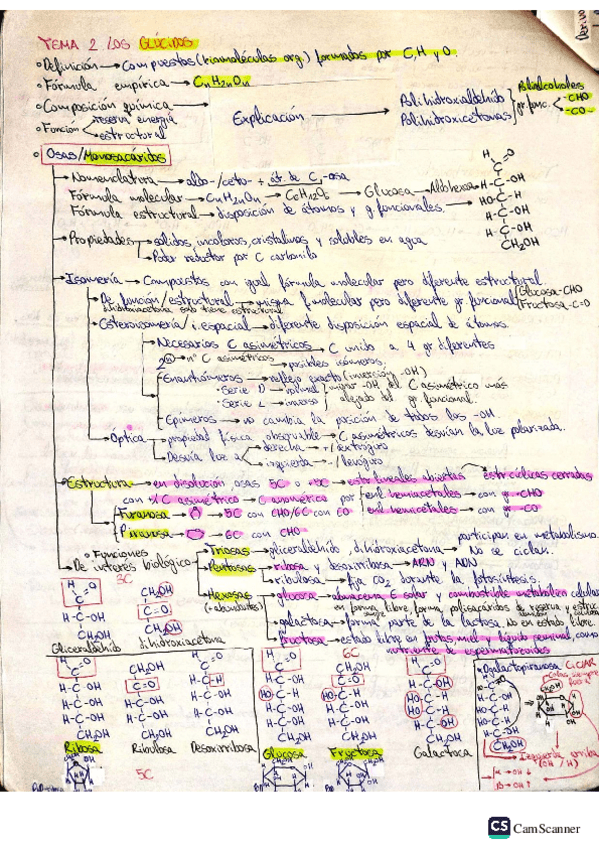 TEMA 2 LOS GLÚCIDOS
Definición → Compuestos (biomoléculas org.) formados por C, H y O.
Fórmula empírica → CnH2nOn
Composición química → Explicación → Polihidroxialdehído Polihidroxicetonas Polialcoholes gr. func. -CHO -CO-
Función reserva energía estructural
Osas/Monosacáridos
Nomenclatura → aldo-/ceto- + át. de C, -osa
Fórmula molecular → CnH2nOn → C6H12O6 → Glucosa → Aldohexosa
Fórmula estructural → disposición de átomos y g. funcionales.
Propiedades → sólidos, incoloros, cristalinos y solubles en agua
Poder reductor por C carbonilo
Isomería → Compuestos con igual fórmula molecular pero diferente estructural.
De función/estructural → misma f. molecular pero diferente gr funcional Glucosa-CHO Fructosa-C=O
dihidroxiacetona solo tiene estructural
Estereoisomería/i. espacial → diferente disposición espacial de átomos.
Necesarios C asimétricos → C unido a 4 gr diferentes
2 nº C asimétricos → posibles isómeros.
Enantiómeros → reflejo exacto (inversión -OH)
Serie D → normal mirar -OH del C asimétrico más
Serie L → inversa alejado del gr. funcional.
Epímeros → no cambia la posición de todos los -OH.
Óptica → propiedad física observable → C asimétricos desvían la luz polarizada.
Desvía luz a derecha → +/dextrógiro
izquierda → -/levógiro
Estructura → en disolución osas 5C o +5C → estr lineales abiertas estr cíclicas cerradas
con 1 C asimétrico → C anomérico por enl. hemiacetales → con g -CHO
enl. hemicetales → con g -CO
Furanosa → 5C con CHO/6C con CO
Piranosa → 6C con CHO
Funciones
De interés biológico
Triosas → gliceraldehído, dihidroxiacetona → participan en metabolismo. No se ciclan.
Pentosas → ribosa y desoxirribosa → ARN y ADN
ribulosa → fija CO2 durante la fotosíntesis.
Hexosas (+abundantes) → glucosa → almacena E solar y combustible metabólico celular
en forma libre, forma polisacáridos de reserva y estruc.
galactosa → forma parte de la lactosa. No en estado libre.
fructosa → estado libre en frutos, miel y líquido seminal, como
nutriente de espermatozoides
3C
Gliceraldehído dihidroxiacetona
6C
Ribosa Ribulosa Desoxirribosa Glucosa Fructosa Galactosa
5C
D galactopiranosa CICLAR
Izquierda arriba
(OH / H)
α → OH ↓
β → OH ↑
CS CamScanner